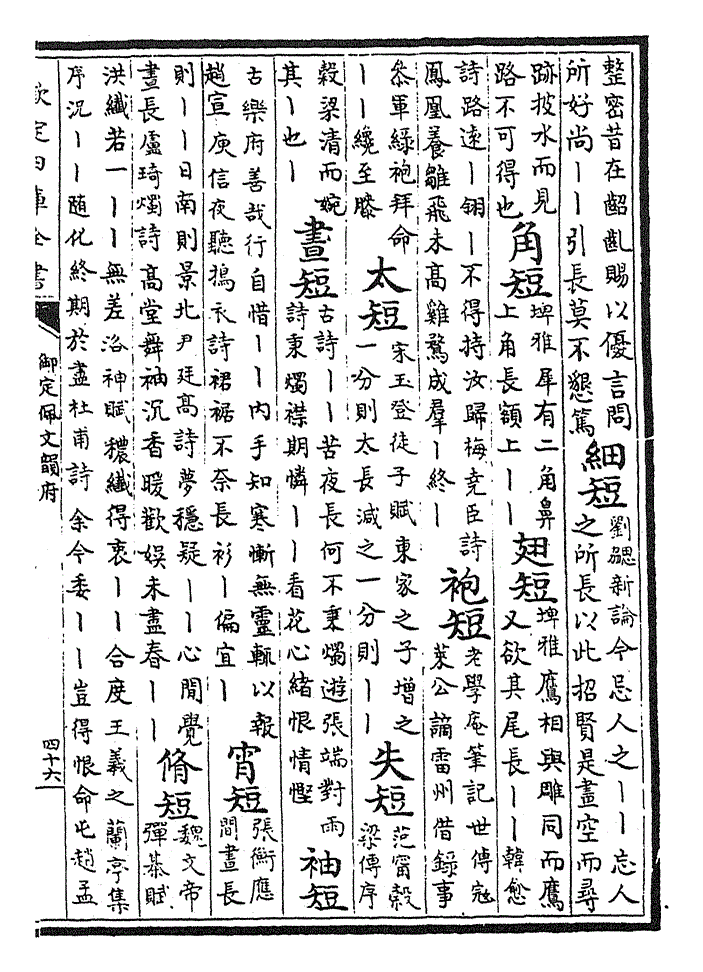 整密昔在齠齓賜以優言問
所好尚丨丨引長莫不懇篤
細短
劉勰新論今忌人之丨丨忘人
之所長以此招賢是畫空而尋
跡披水而見
路不可得也
角短
埤雅犀有二角鼻
上角長額上丨丨
翅短
埤雅鷹相與雕同而鷹
又欲其尾長丨丨韓愈
詩路遠丨翎丨不得持汝歸梅堯臣詩
鳳凰養雛飛未高雞鶩成羣丨終丨
袍短
老學庵筆記世傳寇
萊公謫雷州借錄事
叅軍綠袍拜命
丨丨纔至膝
太短
宋玉登徒子賦東家之子增之
一分則太長減之一分則丨丨
失短
范甯穀
梁傳序
穀梁清而婉
其丨也丨
晝短
古詩丨丨苦夜長何不秉燭遊張端對雨
詩秉燭襟期憐丨丨看花心緒恨情慳
袖短
古樂府善哉行自惜丨丨内手知寒慚無靈輒以報
趙宣 庾信夜聽搗衣詩裙裾不奈長衫丨偏宜丨
宵短
張衡應
間晝長
則丨丨日南則景北尹廷高詩夢穩疑丨丨心閒覺
晝長盧琦燭詩高堂舞袖沉香暖歡娛未盡春丨丨
脩短
魏文帝
彈棊賦
洪纖若一丨丨無差洛神賦穠纖得衷丨丨合度王羲之蘭亭集
序況丨丨隨化終期於盡杜甫詩余今委丨丨豈得恨命屯趙孟
欽定四庫全書
御定佩文韻府
四十六